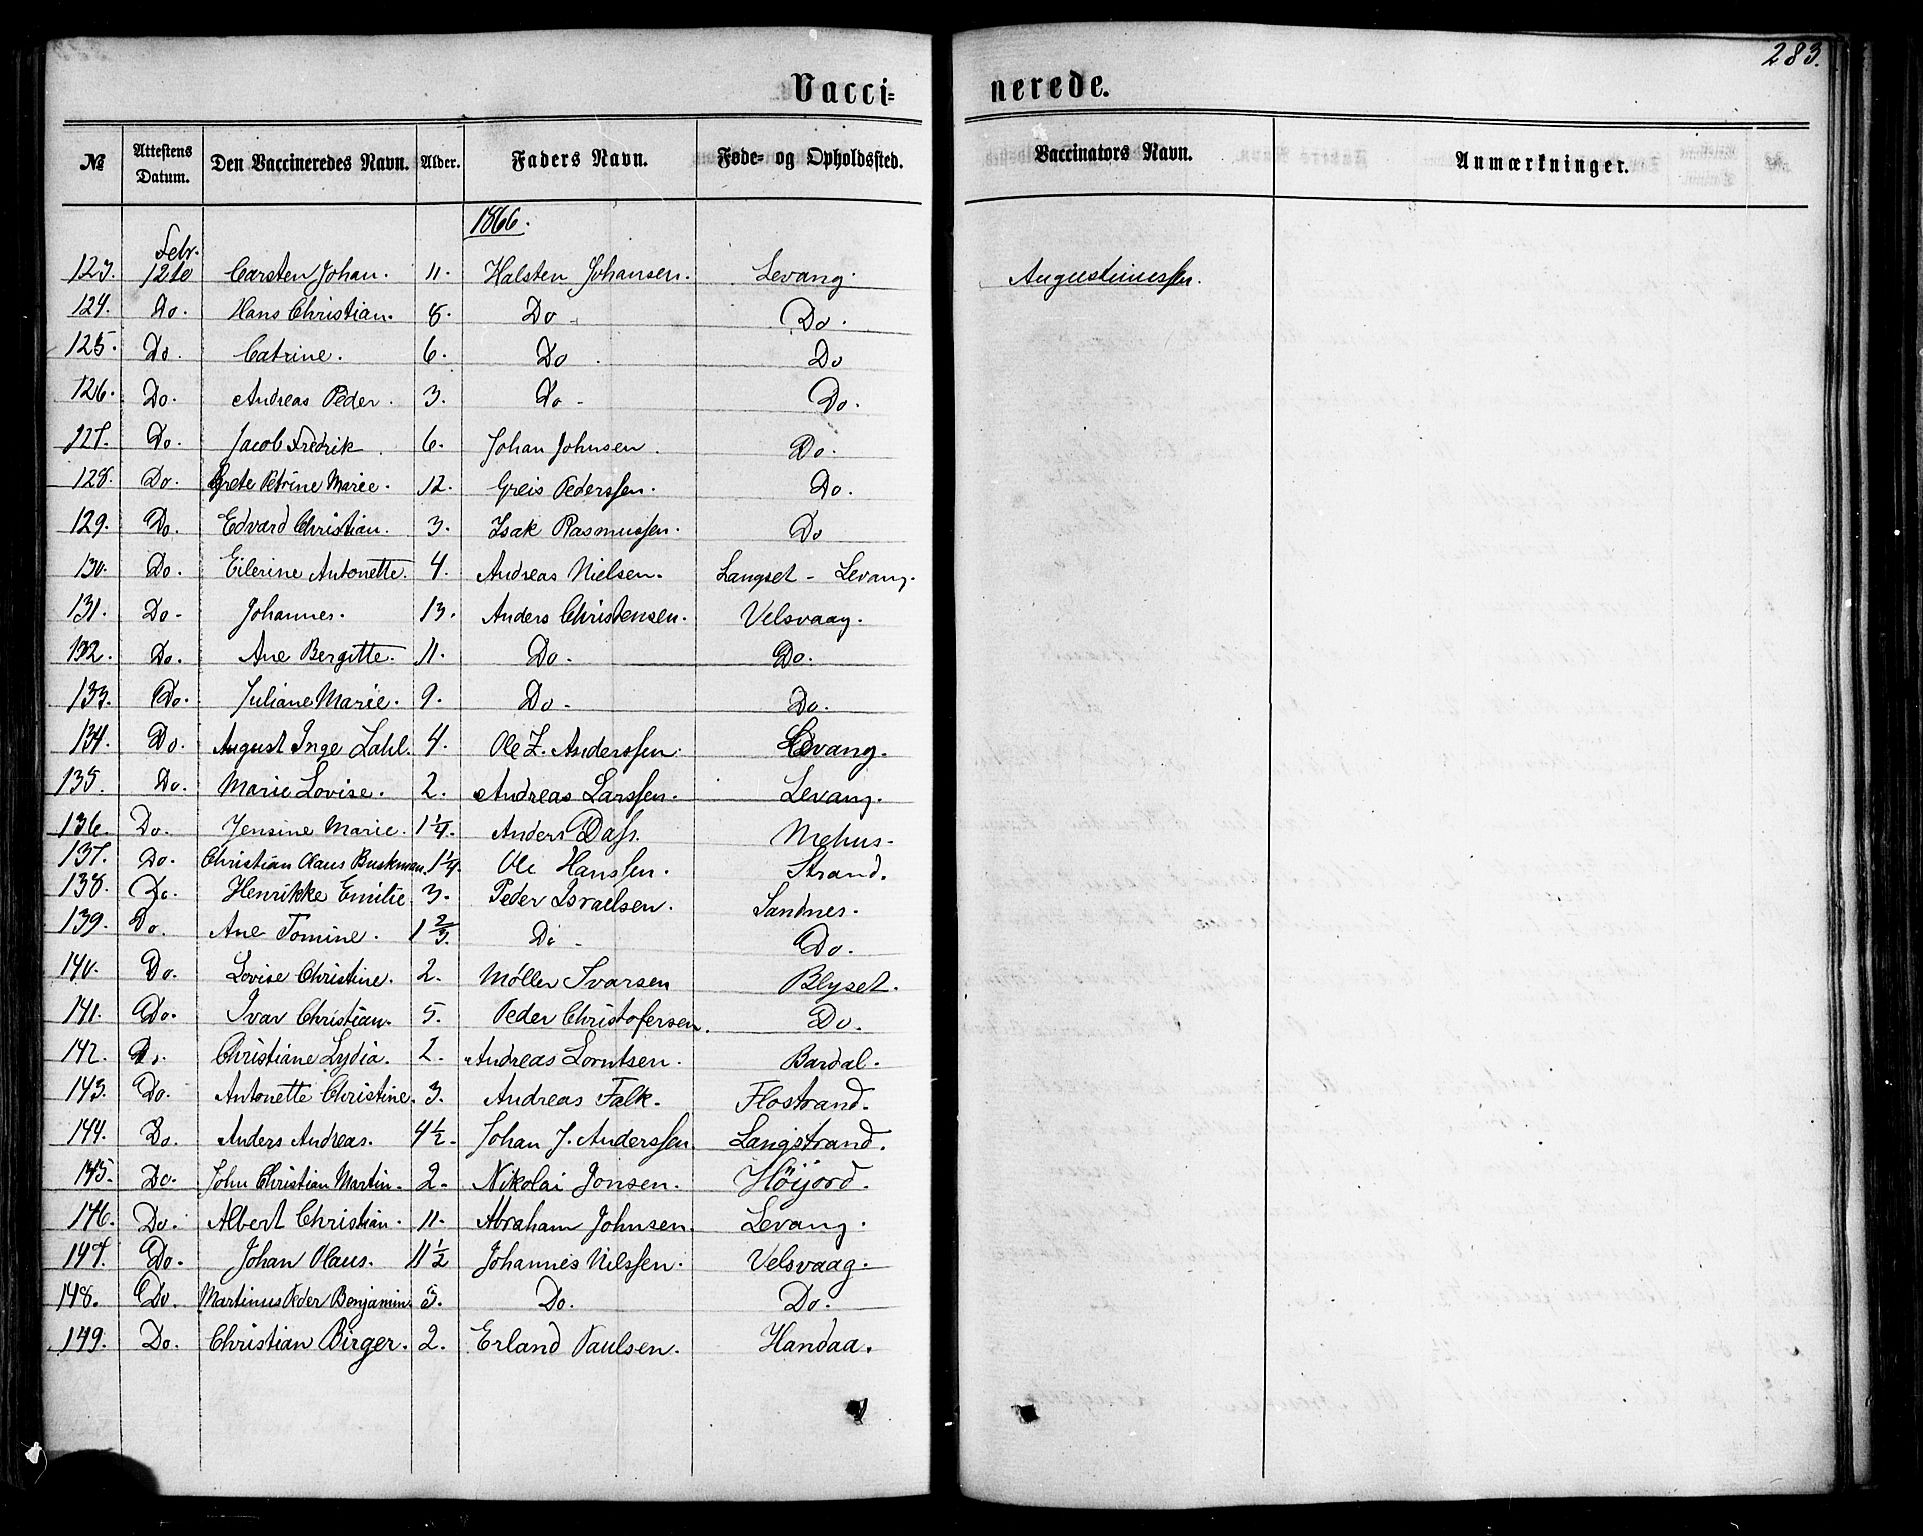 283.
Vacci= nerede.
№ Attestens Datum. Den Vaccineredes Navn. Alder. Faders Navn. Føde- og Opholdssted. Vaccinators Navn. Anmærkninger.
1866.
Febr.
123. Carsten Johan. 11. Halsten Johansen. Levang.
124. Do. Hans Christian. 8. Do - Do.
125. Do. Catrine. 6. Do. Do
126. Do. Andreas Peder. 3. Do - Do.
127. Do. Jacob Fredrik. 6. Johan Johnsen. Do.
128. Do. Grete Petrine Marie. 12. Greis Pederssen. Do.
129. Do. Edvard Christian. 3. Isak Rasmussen. Do
130. Do. Eilerine Antonette. 4. Andreas Nielsen. Langset - Levang.
131. Do - Johannes. 13. Anders Christensen. Velsvaag.
132. Do. Ane Bergitte. 11. Do - Do.
133. Do. Juliane Marie. 9. Do - Do.
134. Do. August Inge Zahl. 4. Ole Z. Anderssen. Levang.
135. Do. Marie Lovise. 2. Andreas Larssen. Levang.
136. Do. Jensine Marie. 1 1/4. Anders Dass. Mehus.
137. Do. Christian Olaus Buskman. 1 1/4. Ole Hanssen. Strand.
138. Do. Henrikke Emilie. 3. Peder Israelsen. Sandnes.
139. Do. Ane Tomine. 1 2/3. Do - Do.
140. Do. Lovise Christine. 2. Møller Ivarsen Blyset.
141. Do. Ivar Christian. 5. Peder Christofersen. Do.
142. Do. Christiane Lydia. 2. Andreas Lorntsen. Bardal.
143. Do. Antonette Christine. 3. Andreas Falk. Flostrand.
144. Do. Anders Andreas. 4 1/2. Johan J. Anderssen. Langstrand.
145. Do. John Christian Martin. 2. Nikolai Jonsen. Höijord.
146. Do. Albert Christian. 11. Abraham Johnsen. Levang.
147. Do. Johan Olaus. 11 1/2 Johannes Nilssen. Velsvaag.
148. Do. Martinus Peder Benjamin. Do. Do.
149. Do. Christian Birger. 2. Erland Paulsen. Handaa.
Augustinussen.